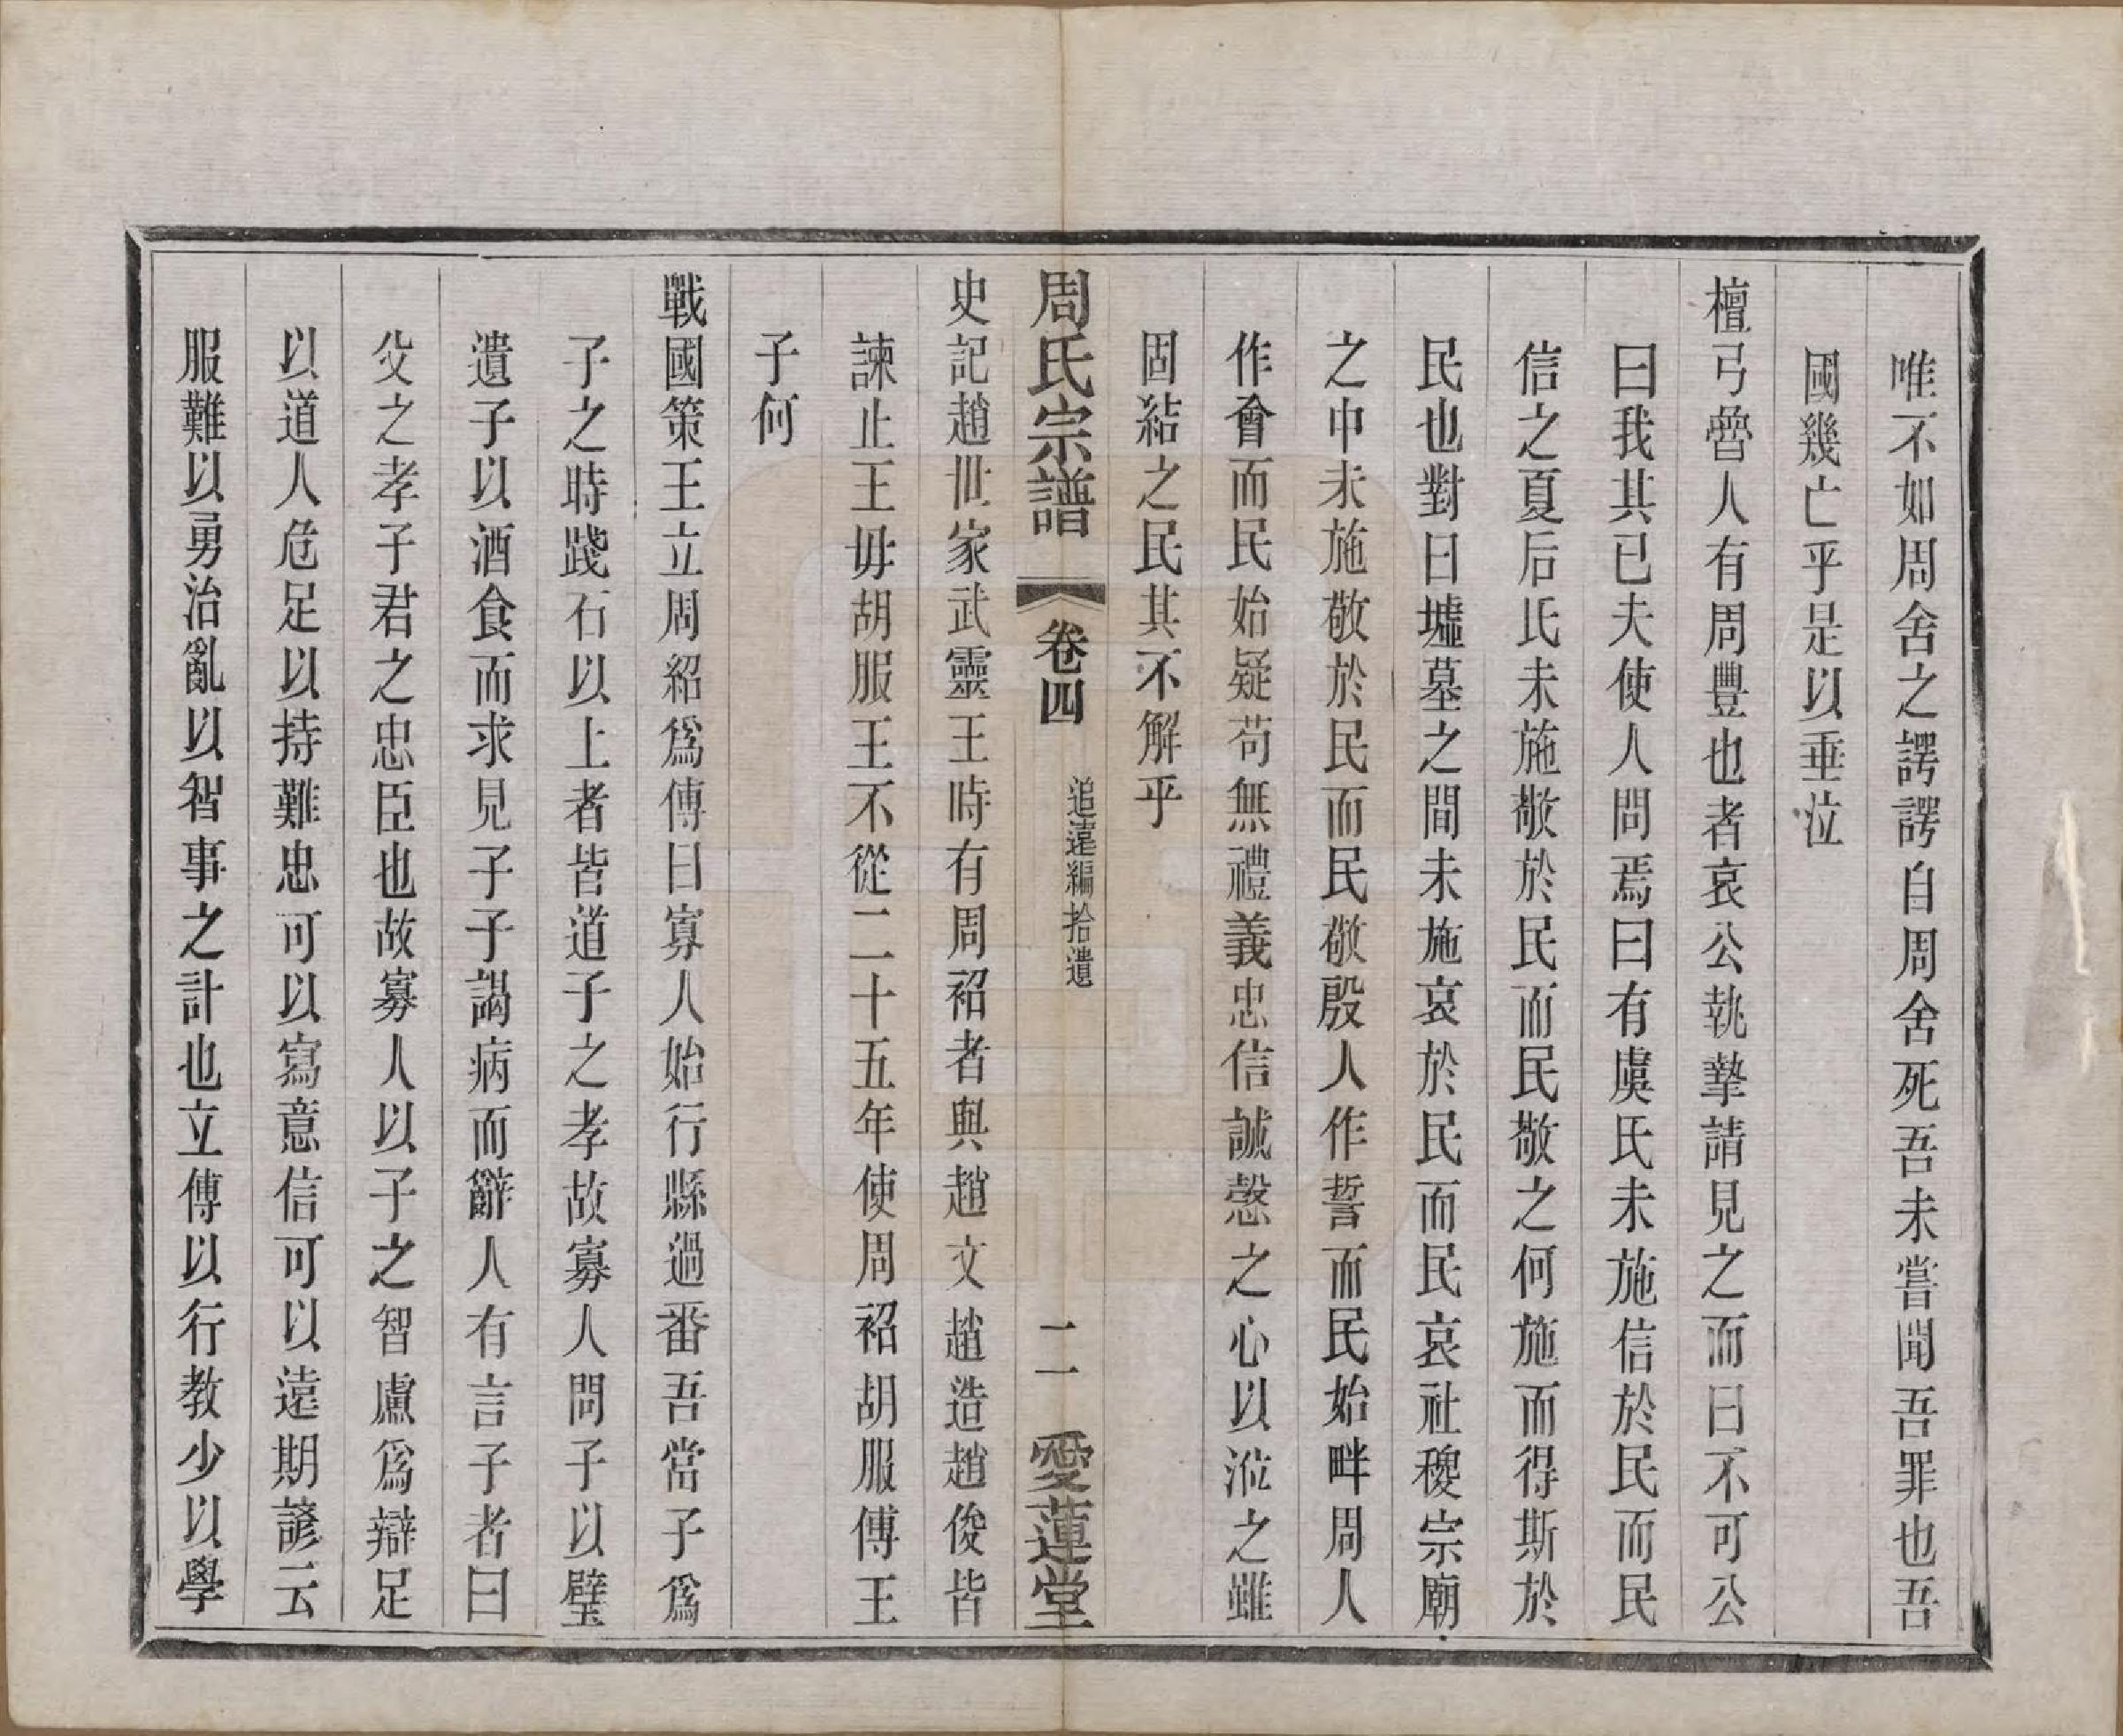 唯不如周舍之諤諤自周舍死吾未嘗聞吾罪也吾
國幾亡乎是以垂泣
檀弓魯人有周豐也者哀公執摯請見之而曰不可公
曰我其已夫使人問焉曰有虞氏未施信於民而民
信之夏后氏未施敬於民而民敬之何施而得斯於
民也對曰墟墓之間未施哀於民而民哀社稷宗廟
之中未施敬於民而民敬殷人作誓而民始畔周人
作會而民始疑苟無禮義忠信誠愨之心以涖之雖
固結之民其不解乎
周氏宗譜
卷四
追遠編拾遺
二
愛蓮堂
史記趙世家武靈王時有周袑者與趙文趙造趙俊皆
諫止王毋胡服王不從二十五年使周袑胡服傅王
子何
戰國策王立周紹爲傅曰寡人始行縣過番吾當子爲
子之時踐石以上者皆道子之孝故寡人問子以璧
遺子以酒食而求見子子謁病而辭人有言子者曰
父之孝子君之忠臣也故寡人以子之智慮爲辯足
以道人危足以持難忠可以寫意信可以遠期諺云
服難以勇治亂以智事之計也立傅以行教少以學